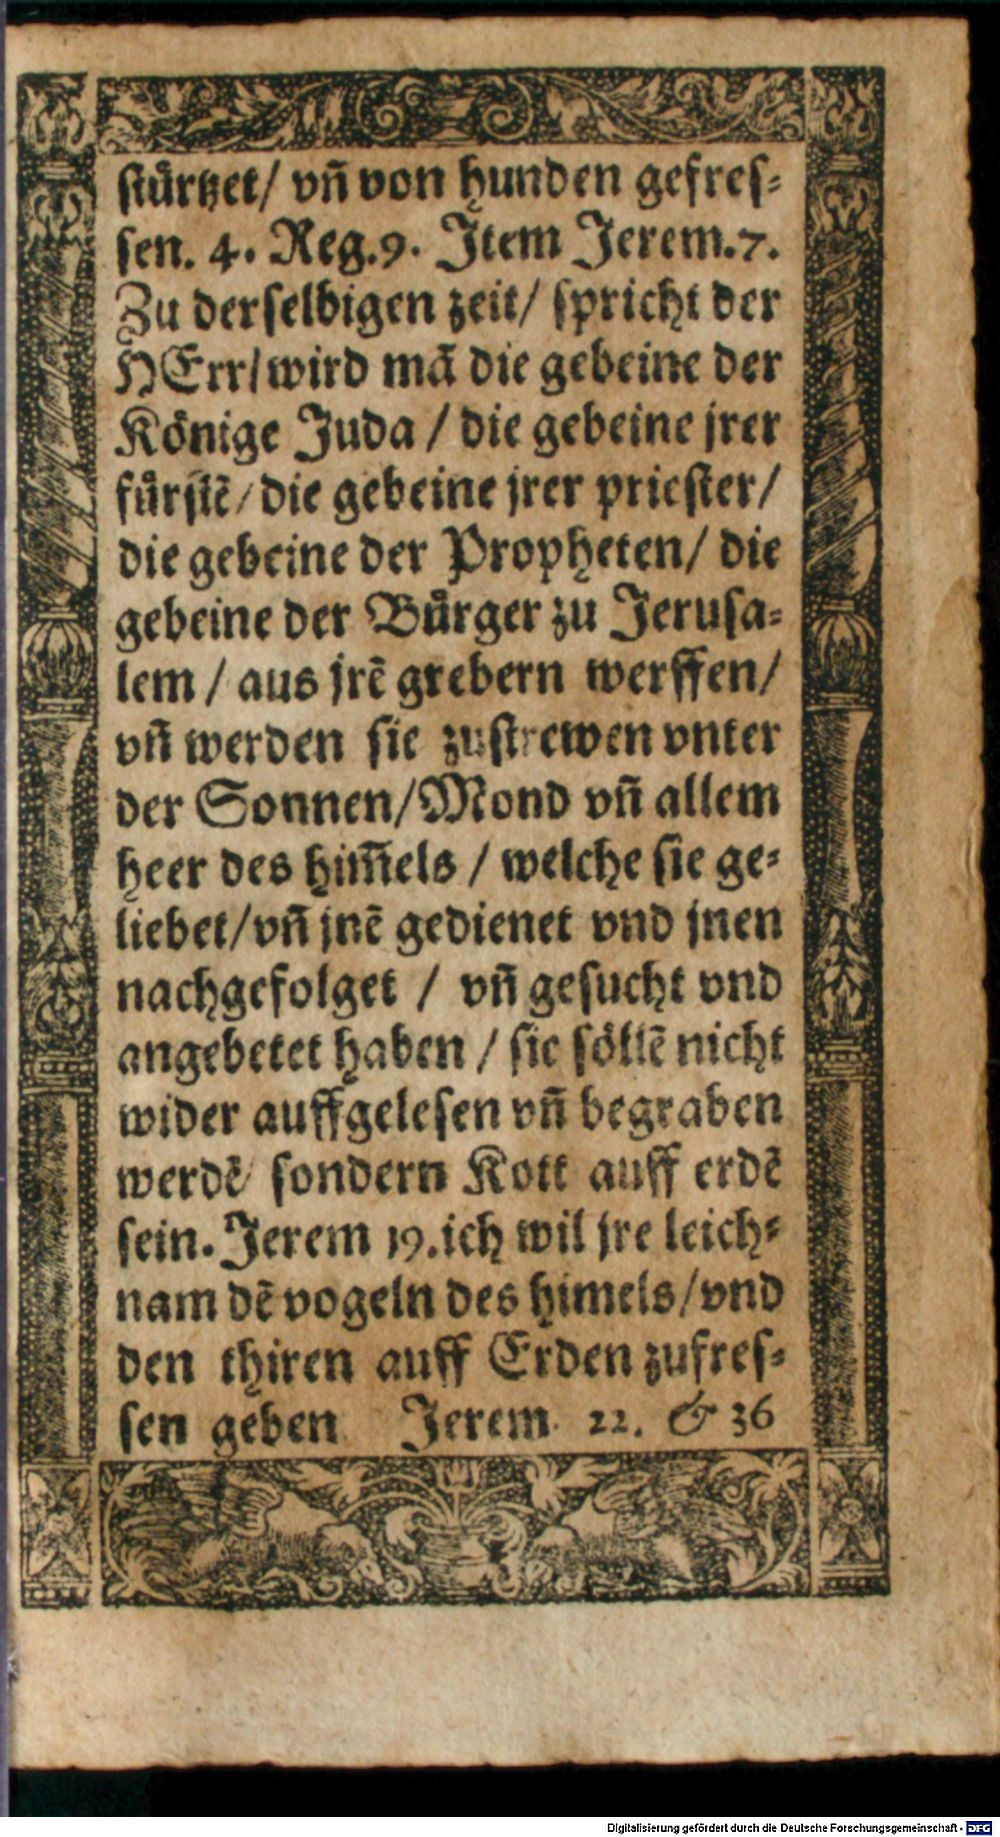 stürtzet/ vn̄ von hunden gefres⸗
sen. 4. Reg.9. Item Jerem.7.
Zu derselbigen zeit/ spricht der
HErr/wird mā die gebeine der
Könige Juda / die gebeine jrer
fürstē/die gebeine jrer priester/
die gebeine der Propheten/ die
gebeine der Bürger zu Jerusa⸗
lem / aus jrē grebern werffen/
vn̄ werden sie zustrewen vnter
der Sonnen/Mond vn̄ allem
heer des him̄els / welche sie ge⸗
liebet/vn̄ jnē gedienet vnd jnen
nachgefolget / vn̄ gesucht vnd
angebetet haben / sie söllē nicht
wider auffgelesen vn̄ begraben
werdē/ sondern Kott auff erdē
sein. Jerem 19.ich wil jre leich⸗
nam dē vogeln des himels/vnd
den thiren auff Erden zufres⸗
sen geben. Jerem. 22. & 36
Digitalisierung gefördert durch die Deutsche Forschungsgemeinschaft - DFG